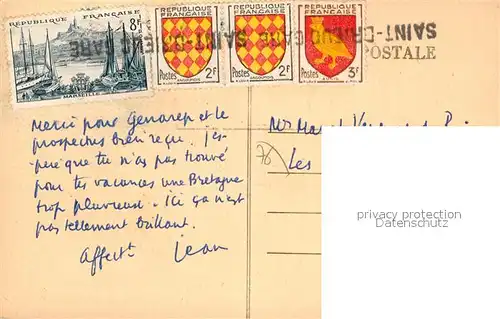 RÉPUBLIQUE FRANÇAISE
8F
MARSEILLE
RÉPUBLIQUE FRANÇAISE
Postes 2F
ANGOUMOIS
RÉPUBLIQUE FRANÇAISE
Postes 2F
ANGOUMOIS
RÉPUBLIQUE FRANÇAISE
Postes 3F
SAINT-BRIEUC GARE
SAINT-BRIEUC GARE
POSTALE
Merci pour Genarep et le
prospectus bien reçu. J'es-
père que tu n'as pas trouvé
pour tes vacances une Bretagne
trop pluvieuse. Ici ça n'est
pas tellement brillant.
Affectt Jean
Mr
76 Les
privacy protection
Datenschutz